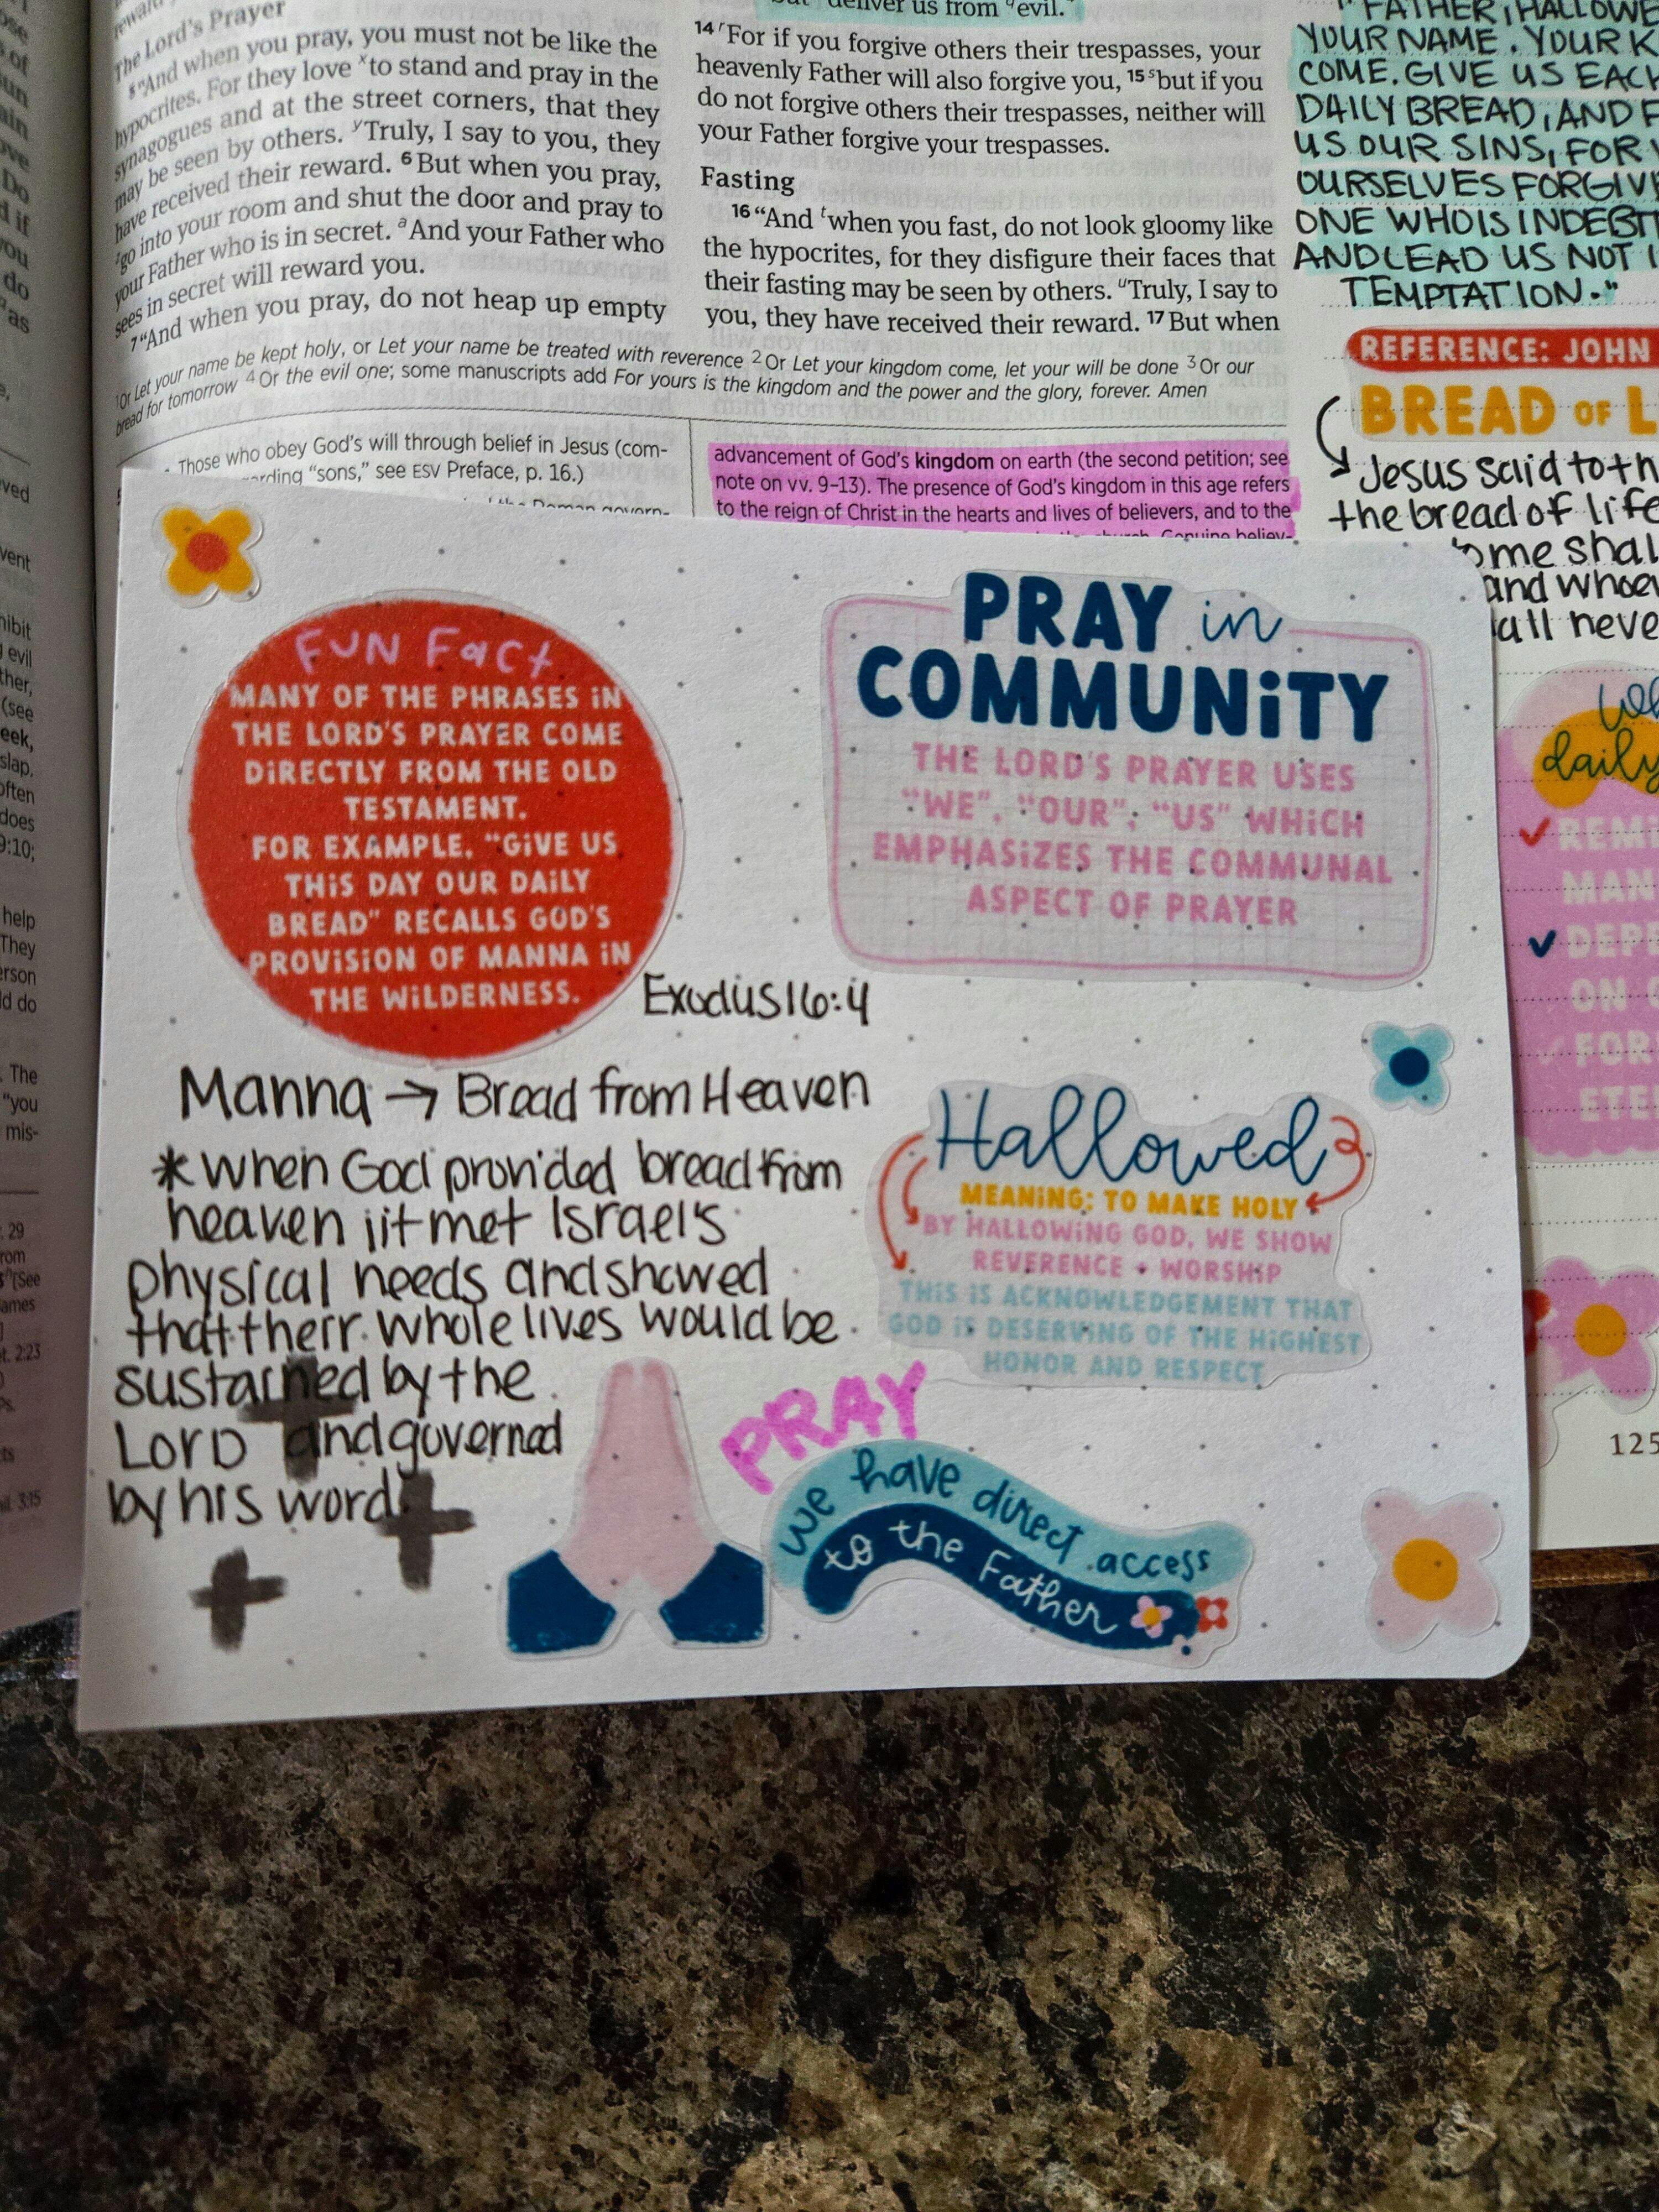 The Lord's Prayer
5 "And when you pray, you must not be like the
hypocrites. For they love x to stand and pray in the
synagogues and at the street corners, that they
may be seen by others. y Truly, I say to you, they
have received their reward. 6 But when you pray,
z go into your room and shut the door and pray to
your Father who is in secret. a And your Father who
sees in secret will reward you.
7 "And when you pray, do not heap up empty
deliver us from q evil."
14 r "For if you forgive others their trespasses, your
heavenly Father will also forgive you, 15 s but if you
do not forgive others their trespasses, neither will
your Father forgive your trespasses.
Fasting
16 "And t when you fast, do not look gloomy like
the hypocrites, for they disfigure their faces that
their fasting may be seen by others. u Truly, I say to
you, they have received their reward. 17 But when
1 Or Let your name be kept holy, or Let your name be treated with reverence 2 Or Let your kingdom come, let your will be done 3 Or our
bread for tomorrow 4 Or the evil one; some manuscripts add For yours is the kingdom and the power and the glory, forever. Amen
Those who obey God's will through belief in Jesus (com-
"sons," see ESV Preface, p. 16.)
advancement of God's kingdom on earth (the second petition; see
note on vv. 9–13). The presence of God's kingdom in this age refers
to the reign of Christ in the hearts and lives of believers, and to the
FATHER, HALLOWE
YOUR NAME. YOUR K
COME. GIVE US EACH
DAILY BREAD, AND F
US OUR SINS, FOR
OURSELVES FORGIVE
ONE WHO IS INDEBT
AND LEAD US NOT I
TEMPTATION."
REFERENCE: JOHN
BREAD OF L
Jesus said to th
the bread of life
me shal
and whoev
all neve
daily
REM
MAN
DEPE
ON
FOR
ETE
125
FUN FACT
MANY OF THE PHRASES IN
THE LORD'S PRAYER COME
DIRECTLY FROM THE OLD
TESTAMENT.
FOR EXAMPLE, "GIVE US
THIS DAY OUR DAILY
BREAD" RECALLS GOD'S
PROVISION OF MANNA IN
THE WILDERNESS.
Exodus 16:4
PRAY in
COMMUNITY
THE LORD'S PRAYER USES
"WE", "OUR", "US" WHICH
EMPHASIZES THE COMMUNAL
ASPECT OF PRAYER
Manna → Bread from Heaven
* when God provided bread from
heaven, it met Israel's
physical needs and showed
that their whole lives would be
sustained by the
LORD and governed
by his word.
Hallowed
MEANING: TO MAKE HOLY
BY HALLOWING GOD, WE SHOW
REVERENCE + WORSHIP
THIS IS ACKNOWLEDGEMENT THAT
GOD IS DESERVING OF THE HIGHEST
HONOR AND RESPECT
PRAY
we have direct access
to the Father